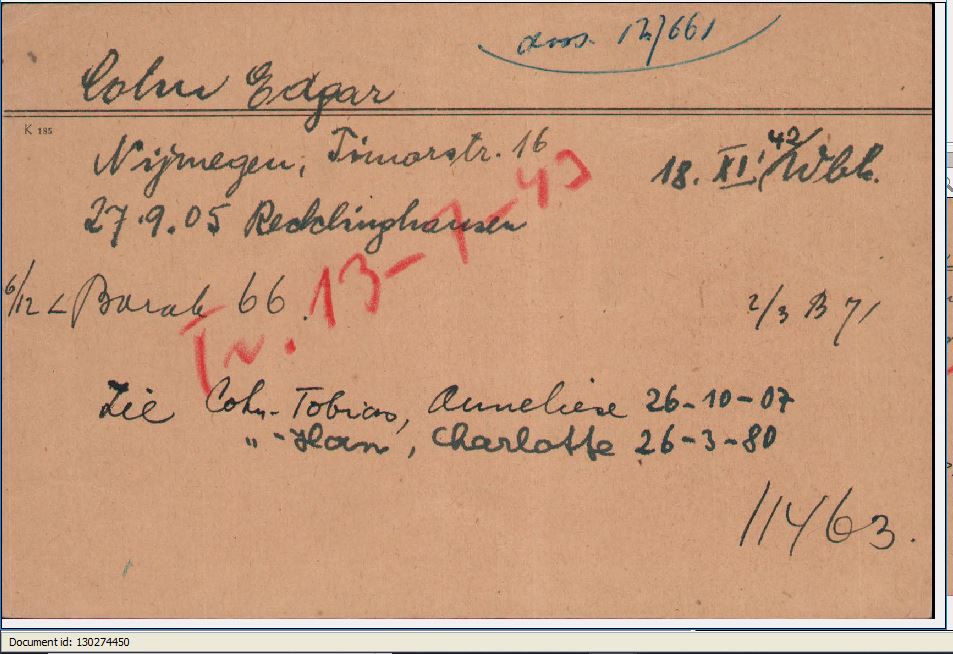 doss. 12/661
Cohn Edgar
K 185
Nijmegen, Timorstr. 16
18. XI. 42/ Wbk.
27.9.05 Recklinghausen
6/12 < Barak 66.
2/3 B 71
Tr. 13-7-43
Zie Cohn-Tobias, Anneliese 26-10-07
" - Han, Charlotte 26-3-80
11463.
Document id: 130274450